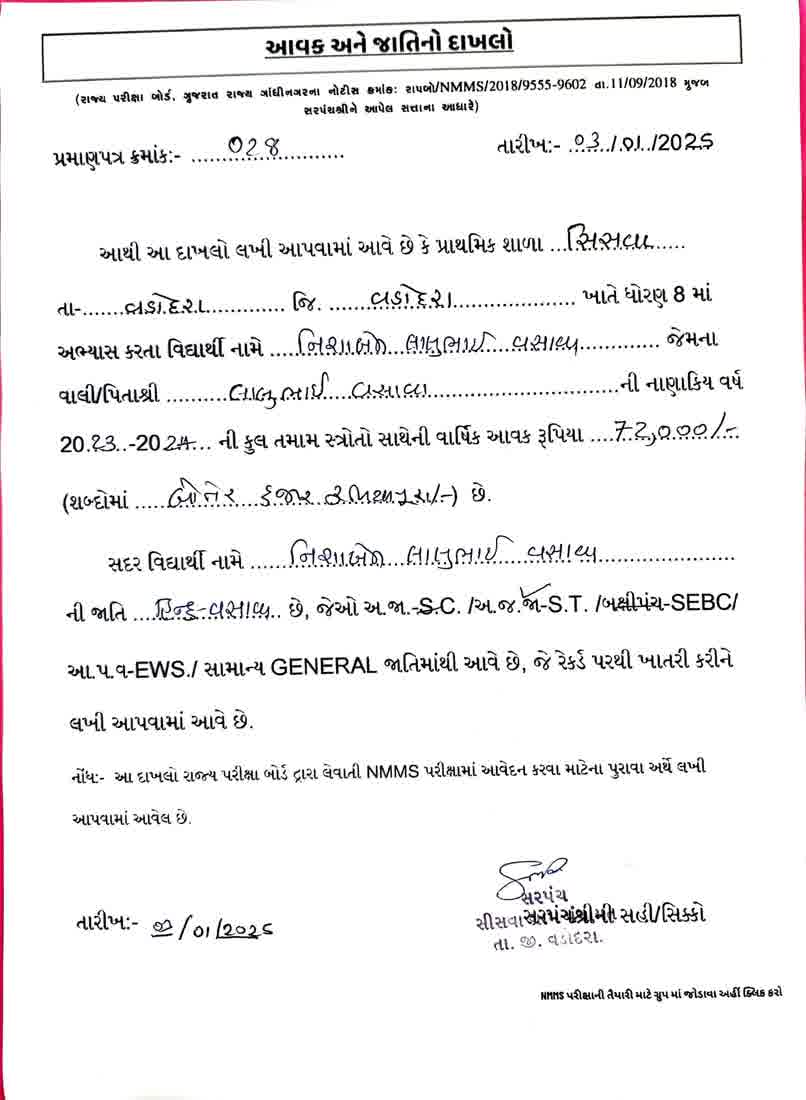 આવક અને જાતિનો દાખલો
(રાજ્ય પરીક્ષા બોર્ડ, ગુજરાત રાજ્ય ગાંધીનગરના નોટીસ ક્રમાંક: રાપબો/NMMS/2018/9555-9602 તા.11/09/2018 મુજબ
સરપંચશ્રીને આપેલ સત્તાના આધારે)
પ્રમાણપત્ર ક્રમાંક:- ૦૨૪ તારીખ:- ૦૩/૦૧/2025
આથી આ દાખલો લખી આપવામાં આવે છે કે પ્રાથમિક શાળા સિસવા
તા- વડોદરા જિ. વડોદરા ખાતે ધોરણ 8 માં
અભ્યાસ કરતા વિદ્યાર્થી નામે નિશાબેન લાખુભાઈ વસાવા જેમના
વાલી/પિતાશ્રી લાખુભાઈ વસાવા ની નાણાકિય વર્ષ
2023-2024 ની કુલ તમામ સ્ત્રોતો સાથેની વાર્ષિક આવક રૂપિયા 72,000/-
(શબ્દોમાં બોતેર હજાર રૂપિયા પુરા/-) છે.
સદર વિદ્યાર્થી નામે નિશાબેન લાખુભાઈ વસાવા
ની જાતિ હિન્દુ-વસાવા છે, જેઓ અ.જા.-S.C. /અ.જ.જા-S.T. /બક્ષીપંચ-SEBC/
આ.પ.વ-EWS./ સામાન્ય GENERAL જાતિમાંથી આવે છે, જે રેકર્ડ પરથી ખાતરી કરીને
લખી આપવામાં આવે છે.
નોંધ:- આ દાખલો રાજ્ય પરીક્ષા બોર્ડ દ્રારા લેવાતી NMMS પરીક્ષામાં આવેદન કરવા માટેના પુરાવા અર્થે લખી
આપવામાં આવેલ છે.
સરપંચ
તારીખ:- ૩/01/2025 સીસવા સરપંચશ્રીની સહી/સિક્કો
તા. જી. વડોદરા.
NMMS પરીક્ષાની તૈયારી માટે ગ્રુપ માં જોડાવા અહીં ક્લિક કરો